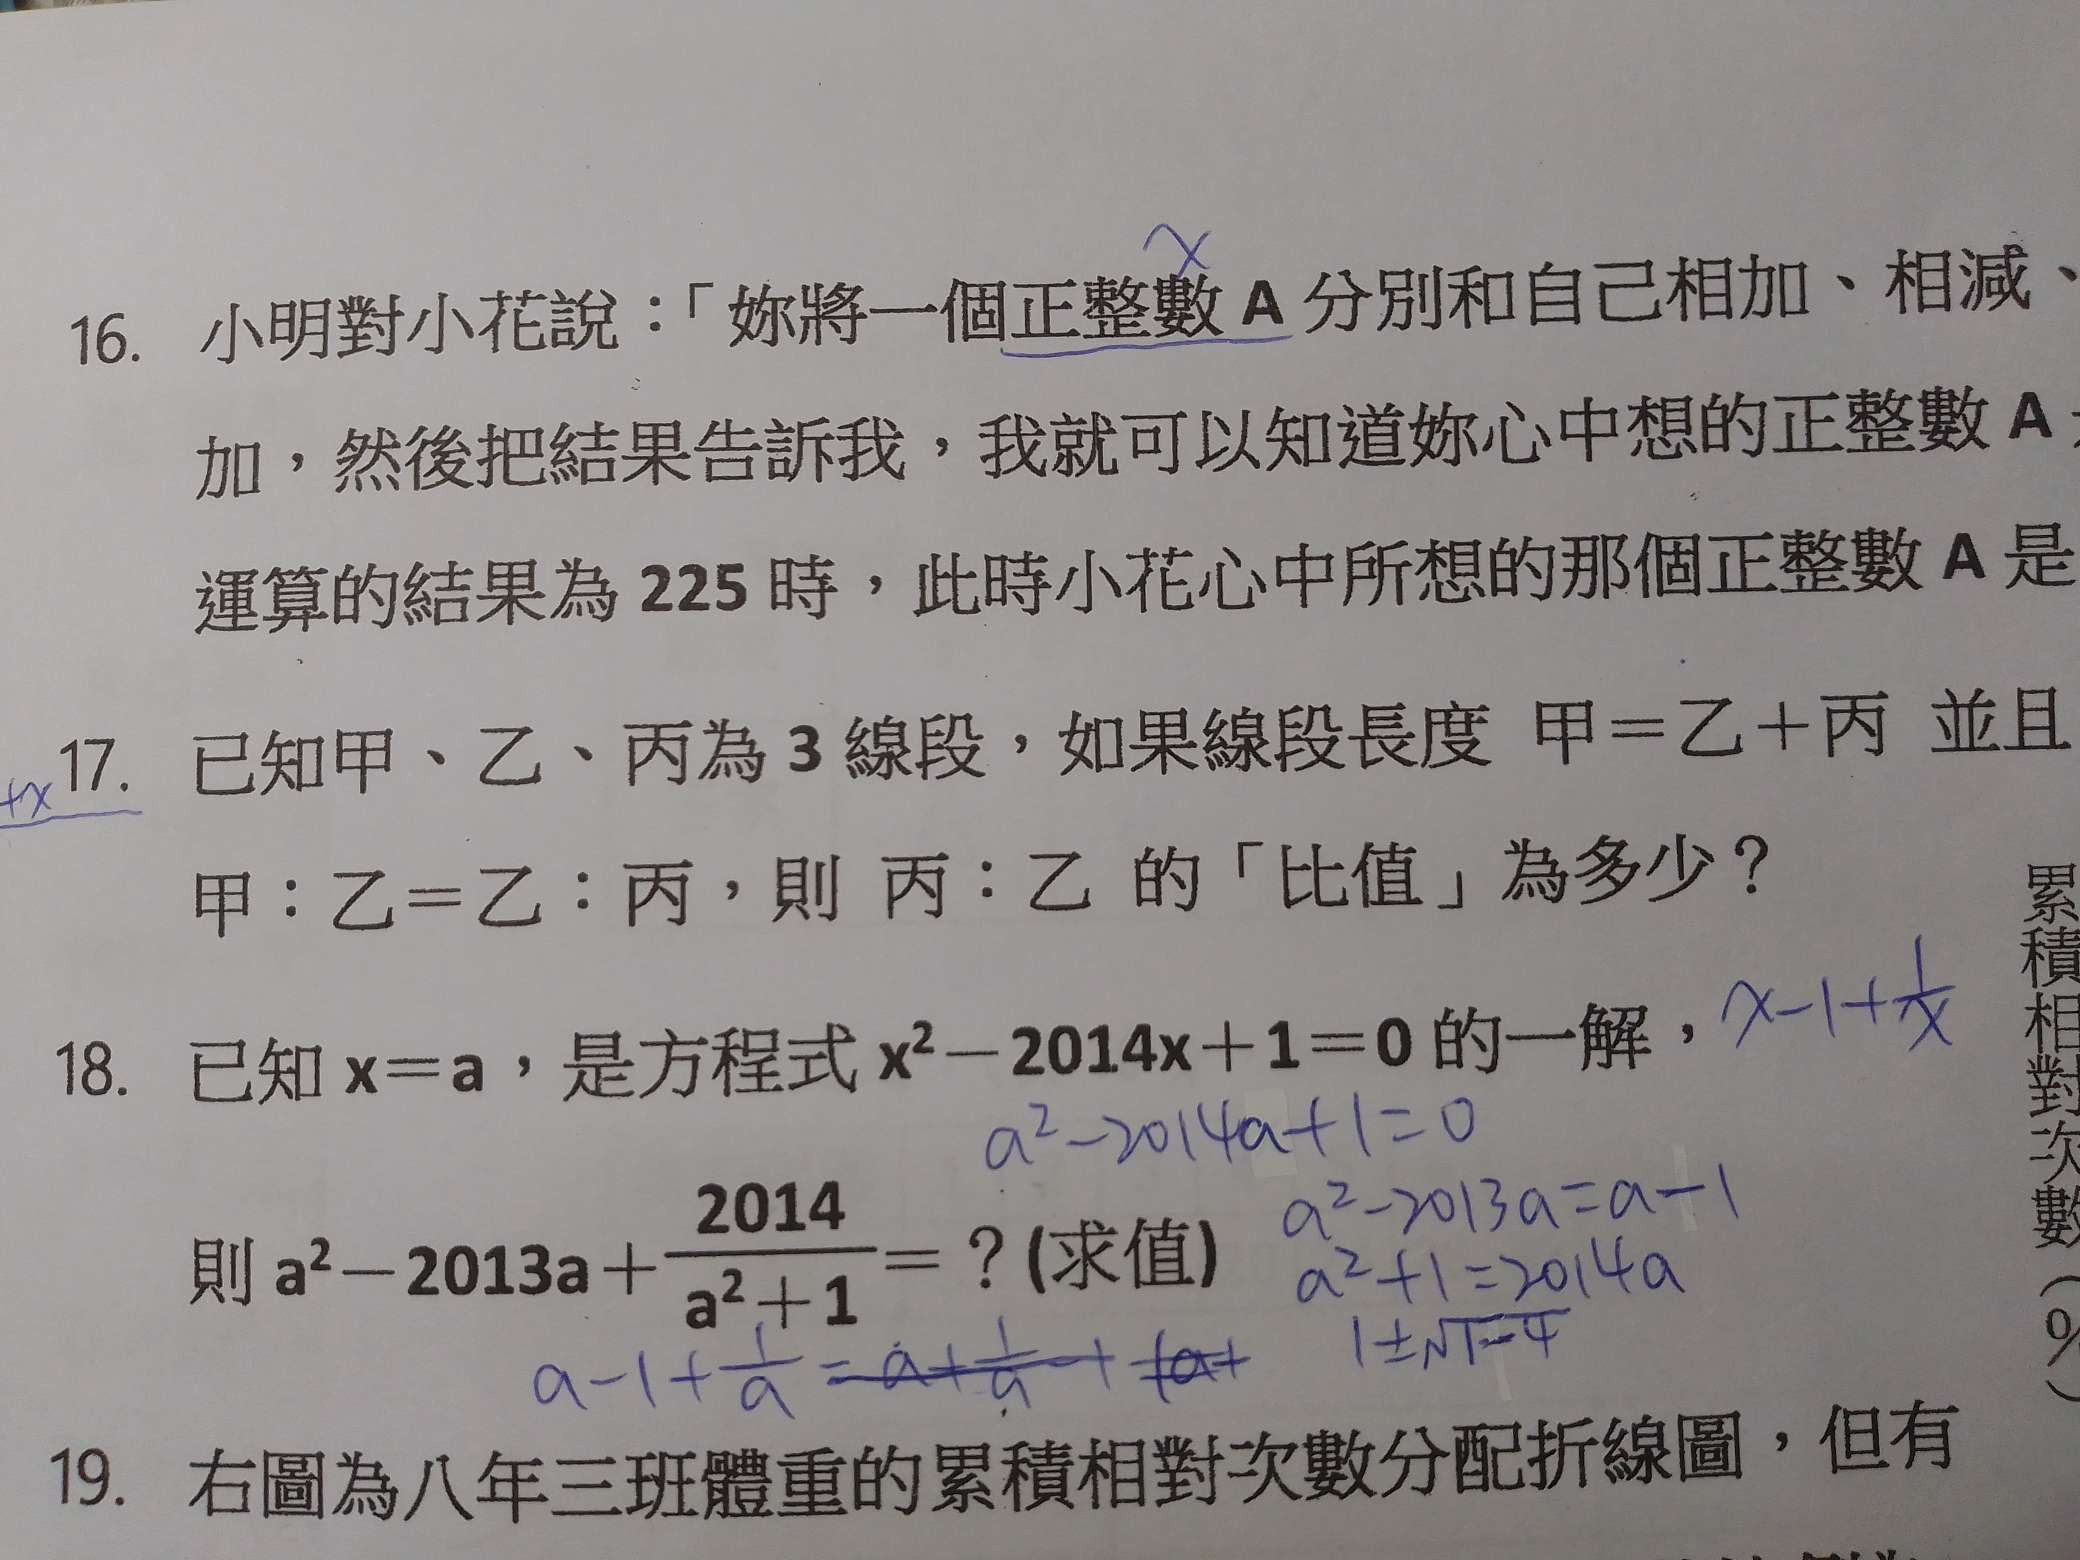 x
16. 小明對小花說:「妳將一個正整數 A 分別和自己相加、相減、
加,然後把結果告訴我,我就可以知道妳心中想的正整數 A
運算的結果為 225 時,此時小花心中所想的那個正整數 A 是
17. 已知甲、乙、丙為 3 線段,如果線段長度 甲=乙+丙 並且
+x
甲:乙=乙:丙,則 丙:乙 的「比值」為多少?
18. 已知 x=a,是方程式 x²-2014x+1=0 的一解,
x-1+1/x
a²-2014a+1=0
則 a²-2013a+2014/a²+1=?(求值)
a²-2013a=a-1
a²+1=2014a
1±√1-4
a-1+1/a=a+1/a+
19. 右圖為八年三班體重的累積相對次數分配折線圖,但有
累積相對次數(%)